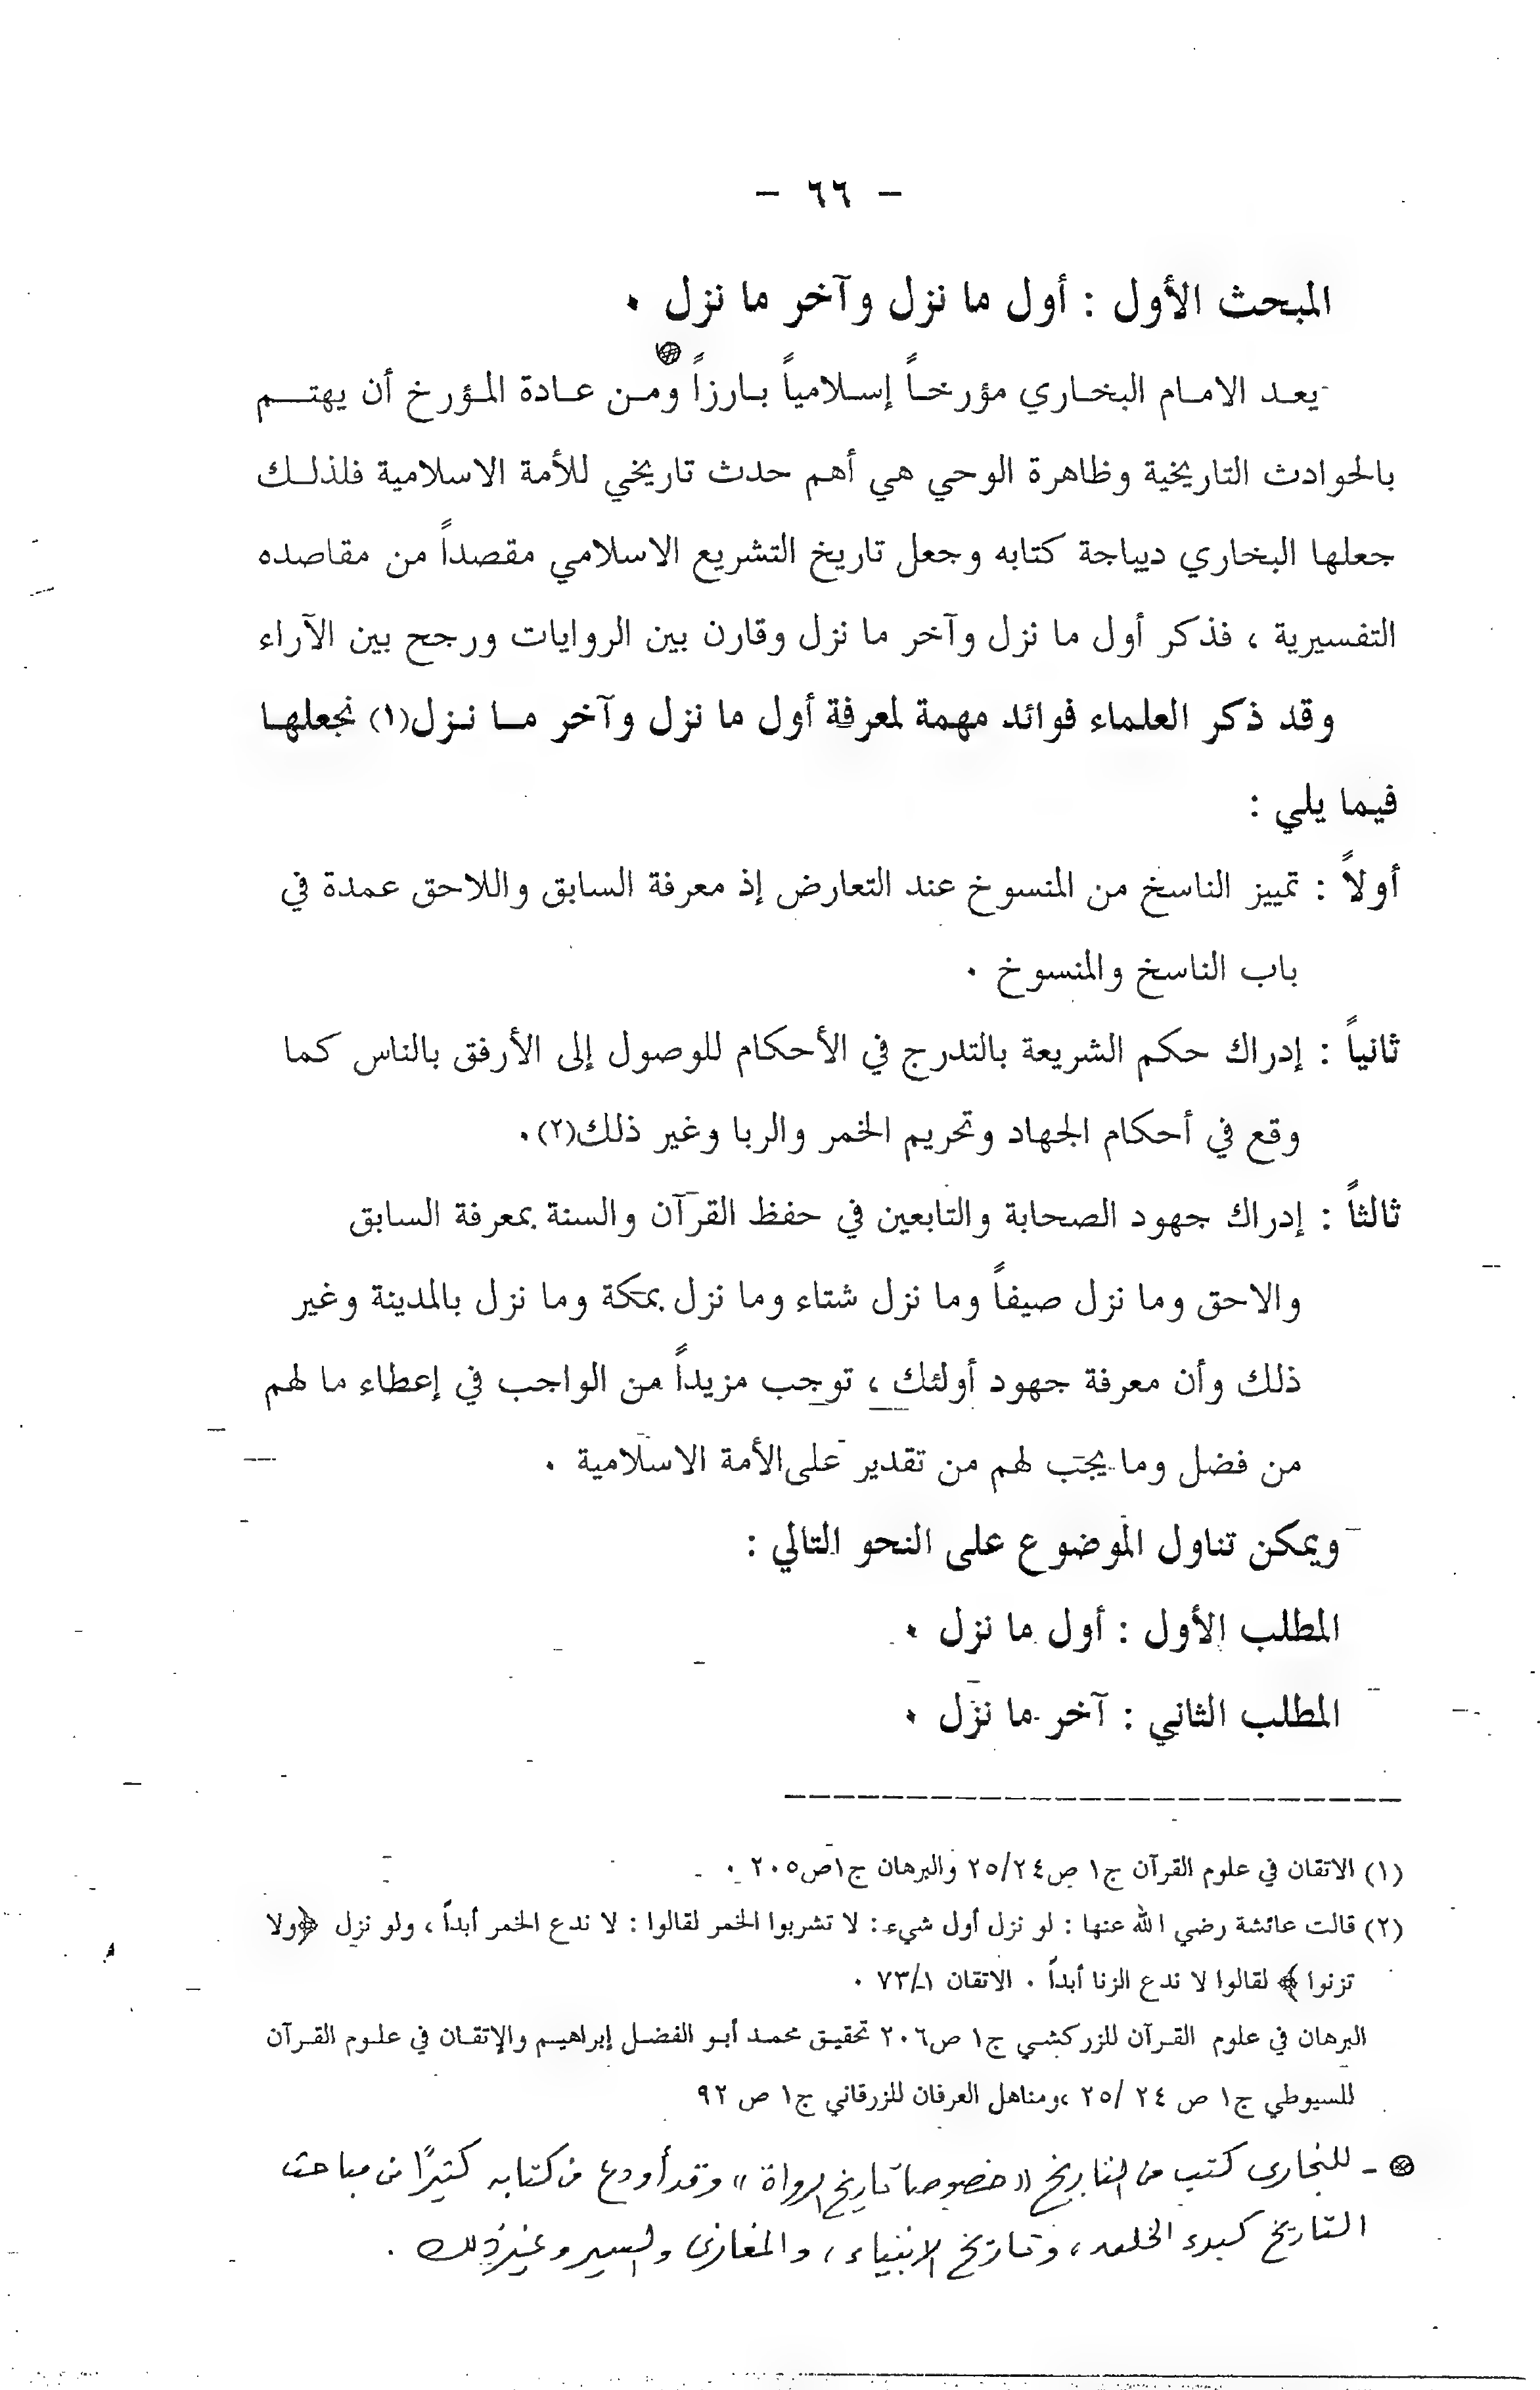 - ٦٦ -
المبحث الأول : أول ما نزل وآخر ما نزل .
يعد الامام البخاري مؤرخاً إسلامياً بارزاً ومن عادة المؤرخ أن يهتم
بالحوادث التاريخية وظاهرة الوحي هي أهم حدث تاريخي للأمة الاسلامية فلذلك
جعلها البخاري ديباجة كتابه وجعل تاريخ التشريع الاسلامي مقصداً من مقاصده
التفسيرية ، فذكر أول ما نزل وآخر ما نزل وقارن بين الروايات ورجح بين الآراء
وقد ذكر العلماء فوائد مهمة لمعرفة أول ما نزل وآخر ما نزل(١) نجعلها
فيما يلي :
أولاً : تمييز الناسخ من المنسوخ عند التعارض إذ معرفة السابق واللاحق عمدة في
باب الناسخ والمنسوخ .
ثانياً : إدراك حكم الشريعة بالتدرج في الأحكام للوصول إلى الأرفق بالناس كما
وقع في أحكام الجهاد وتحريم الخمر والربا وغير ذلك(٢).
ثالثاً : إدراك جهود الصحابة والتابعين في حفظ القرآن والسنة بمعرفة السابق
والاحق وما نزل صيفاً وما نزل شتاء وما نزل بمكة وما نزل بالمدينة وغير
ذلك وأن معرفة جهود أولئك ، توجب مزيداً من الواجب في إعطاء ما لهم
من فضل وما يجب لهم من تقدير على الأمة الاسلامية .
ويمكن تناول الموضوع على النحو التالي :
المطلب الأول : أول ما نزل .
المطلب الثاني : آخر ما نزل .
(١) الاتقان في علوم القرآن ج١ ص٢٥/٢٤ والبرهان ج١ص٢٠٥ .
(٢) قالت عائشة رضي الله عنها : لو نزل أول شيء : لا تشربوا الخمر لقالوا : لا ندع الخمر أبداً ، ولو نزل ﴿ولا
تزنوا ﴾ لقالوا لا ندع الزنا أبداً . الاتقان ٧٣/١ .
البرهان في علوم القرآن للزركشي ج١ ص٢٠٦ تحقيق محمد أبو الفضل إبراهيم والإتقان في علوم القرآن
للسيوطي ج١ ص ٢٤ /٢٥ ،ومناهل العرفان للزرقاني ج١ ص ٩٢
- للبخارى كتب من التاريخ "خصوصا تاريخ الرواة" وقد أودع من كتابه كثيرًا من مباحث
التاريخ كبدء الخلق ، وتاريخ الانبياء ، والمغازى والسير وغير ذلك .